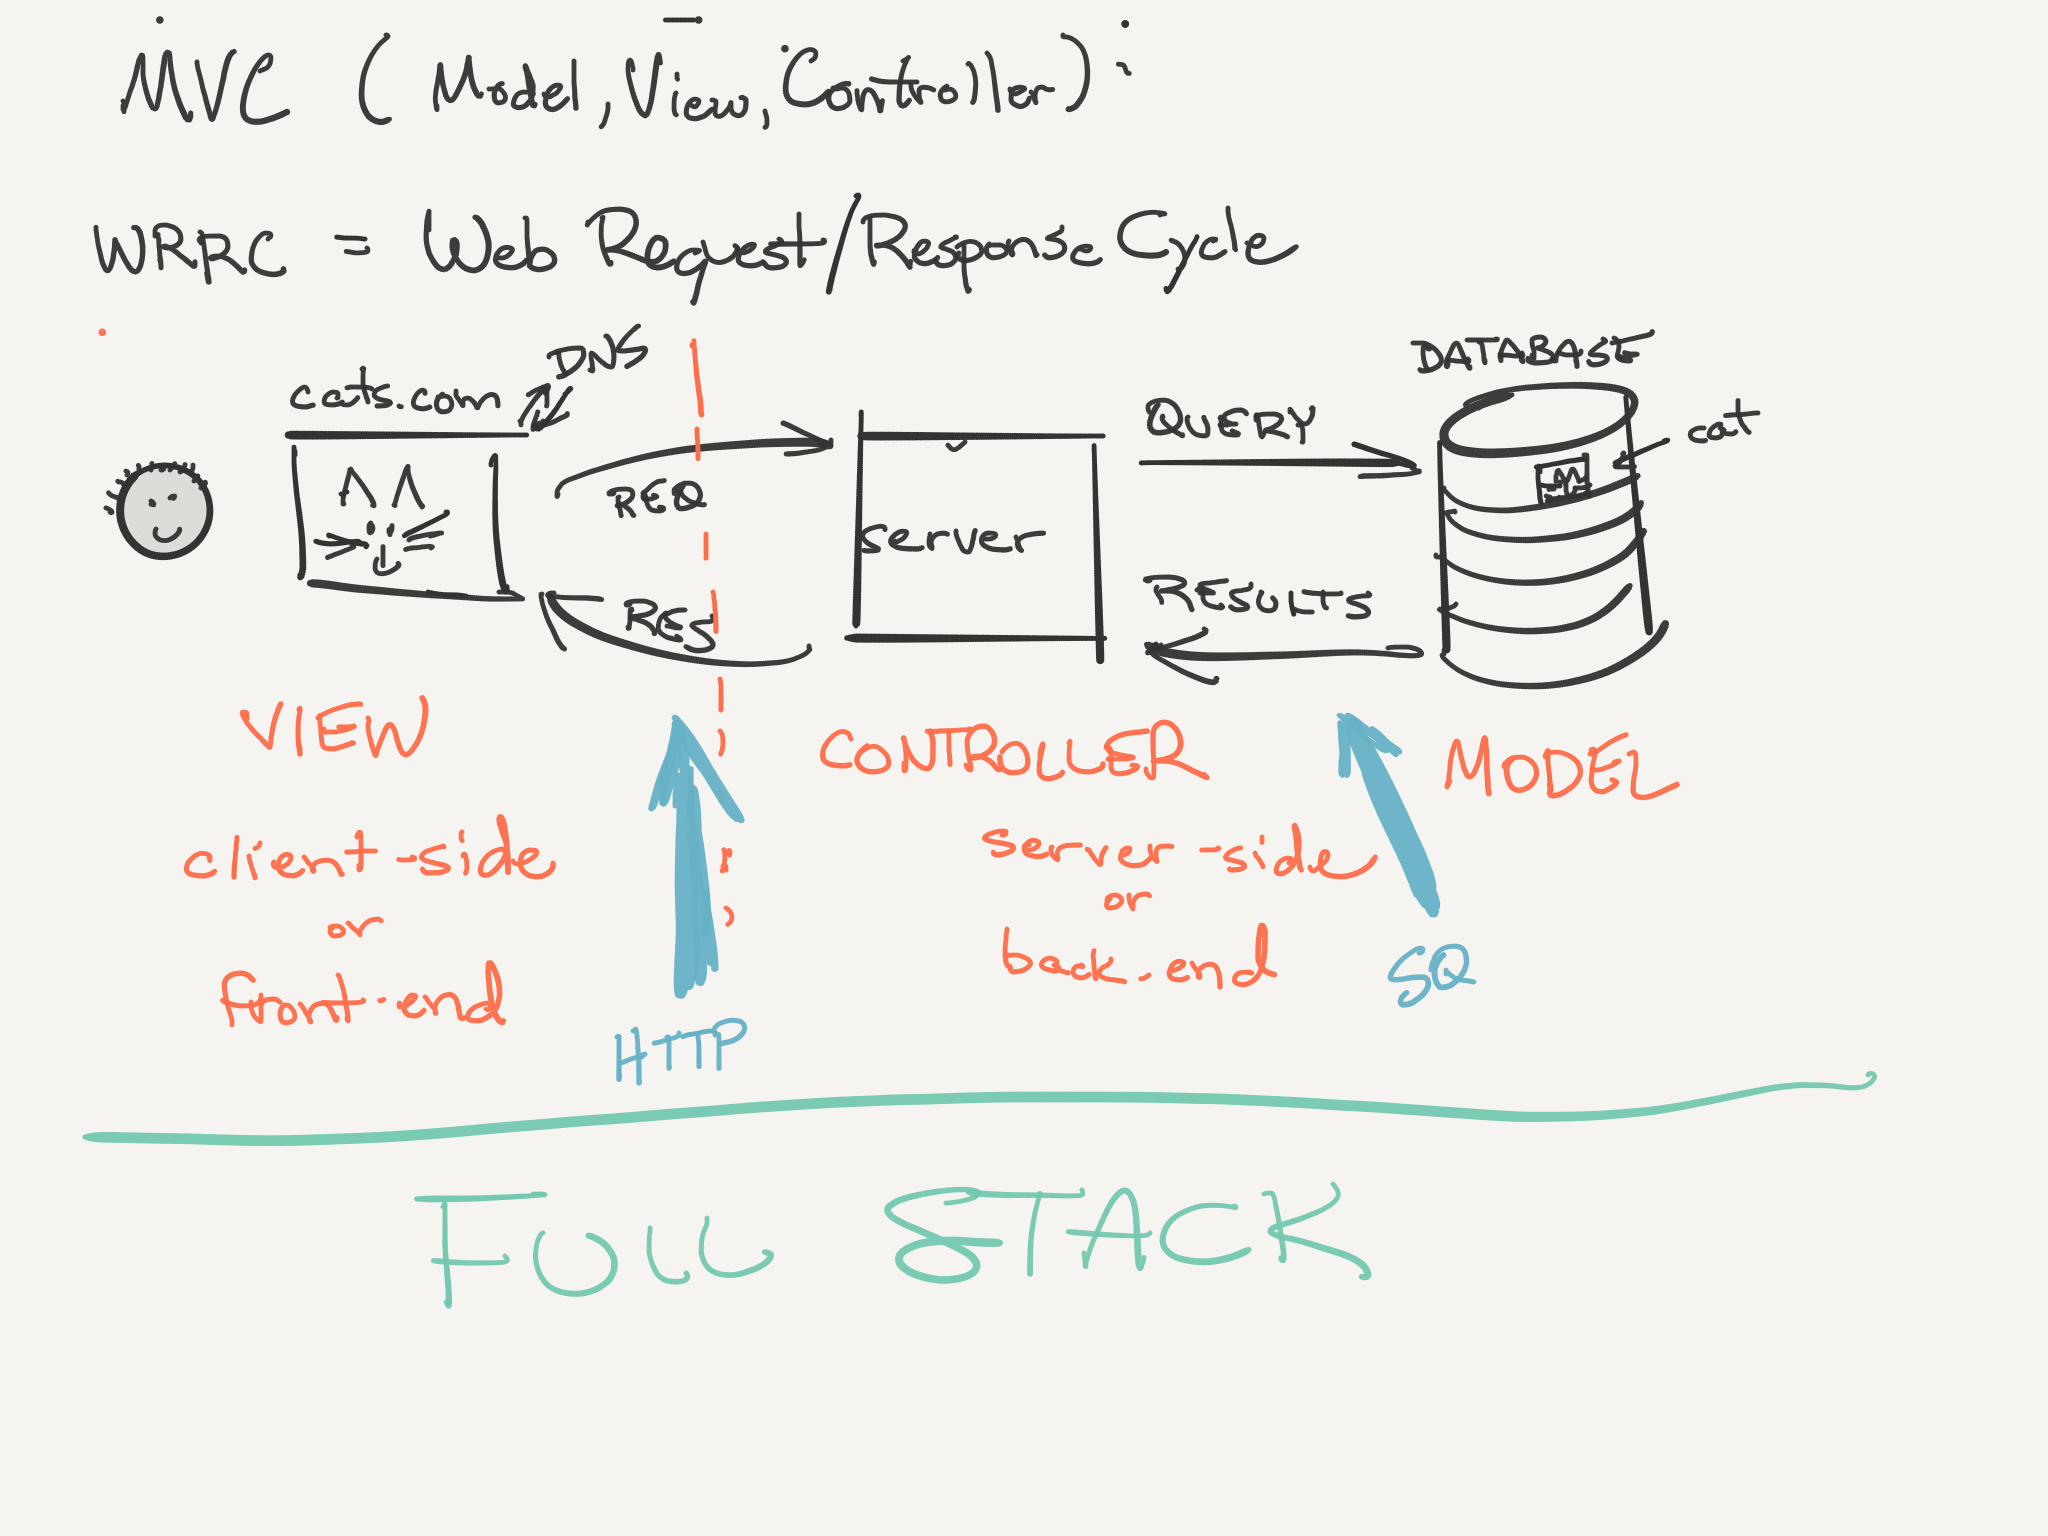 MVC (Model, View, Controller):
WRRC = Web Request/Response Cycle
DNS
cats.com
REQ
RES
server
QUERY
RESULTS
DATABASE
cat
VIEW
client-side
or
front-end
CONTROLLER
server-side
or
back-end
MODEL
HTTP
SQ
FULL STACK